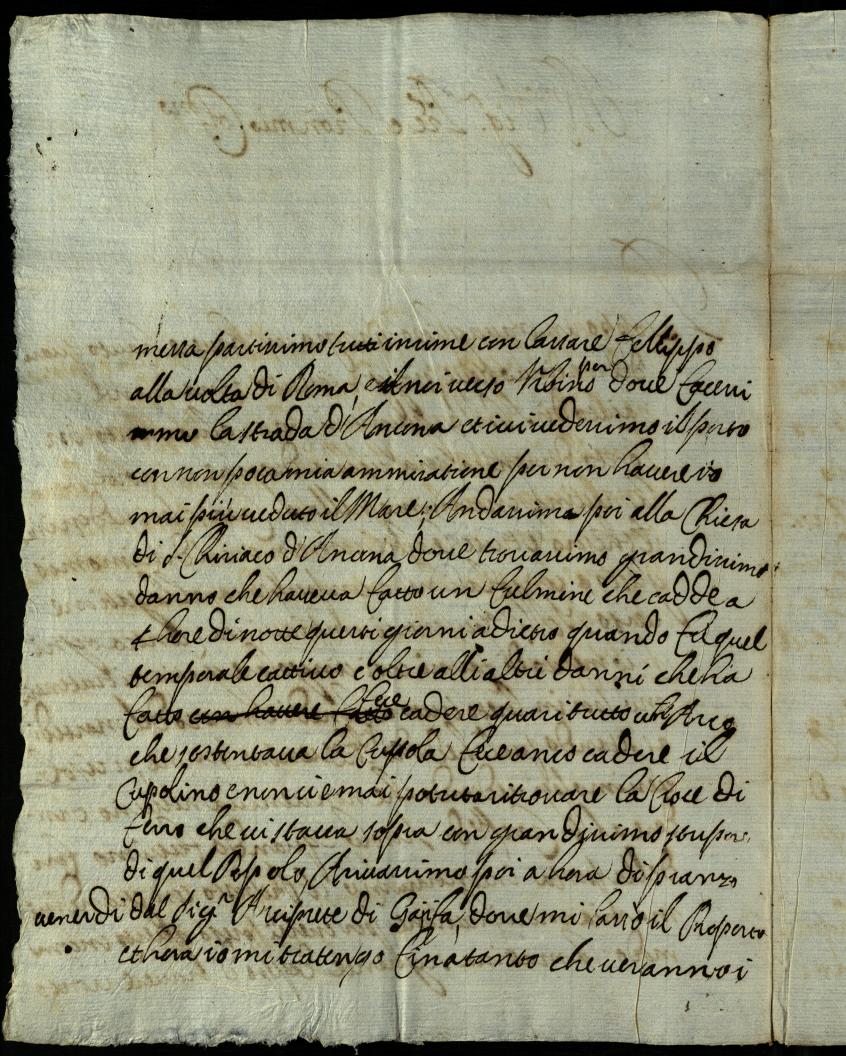 messa partissimo tutti insieme con Cassare Fellippo
alla volta di Roma, e noi verso Urbino per dove facessi
mo la strada d'Ancona et ivi vedessimo il porto
con non poca mia ammiratione per non havere io
mai più veduto il Mare; Andassimo poi alla Chiesa
di S. Chiriaco d'Ancona dove trovassimo grandissimo
danno che haveva fatto un fulmine che cadde a
4 hore di notte questi giorni adietro quando fù quel
temporale cattivo e oltre alli altri danni che hà
fatto con havere fatto fece cadere quasi tutto un Arco
che sostentava la Cupola fece anco cadere il
Cupolino e non si è mai potuta ritrovare la Croce di
ferro che vi stava sopra con grandissimo stupore
di quel Popolo, Arivassimo poi a hora di pranzo
venerdi dal Sigr Arciprete di
et hora io mi tratengo finà tanto che verannoi